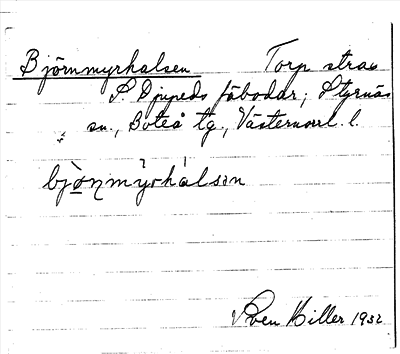 Björnmyrhalsen Torp strax
S. Djupeds fäbodar; Styrnäs
sn., Boteå tg., Västernorrl. l.
bjò̱ɳmỳrháls̱ən
Sven Hiller 1932